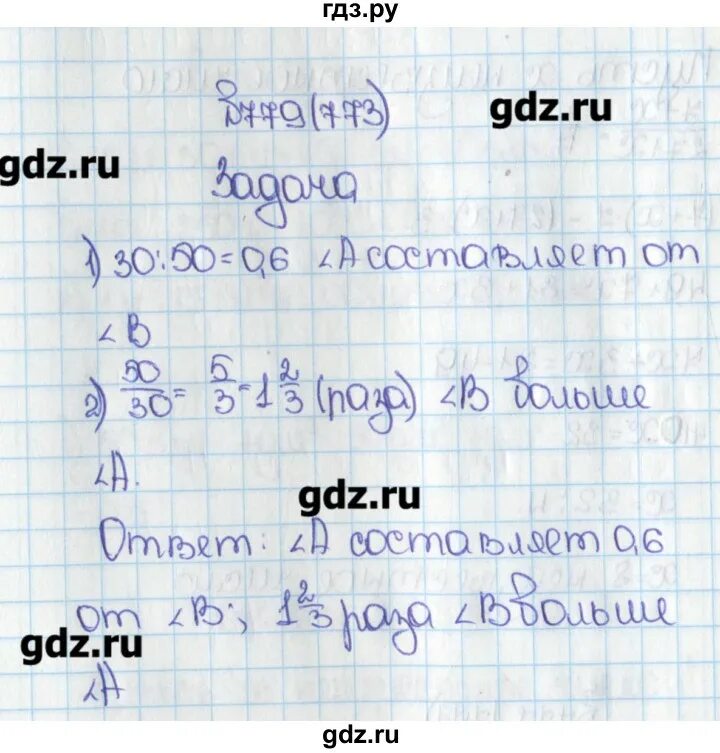 гдз.ру
№779(773)
gdz.ru
gdz.ru
Задача
1) 30:50=0,6 ∠A составляет от
∠B
2) 50/30 = 5/3 = 1 2/3 (раза) ∠B больше
∠A.
gdz.ru
Ответ: ∠A составляет 0,6
от ∠B; 1 2/3 раза ∠B больше
gdz.ru
∠A
gdz.ru